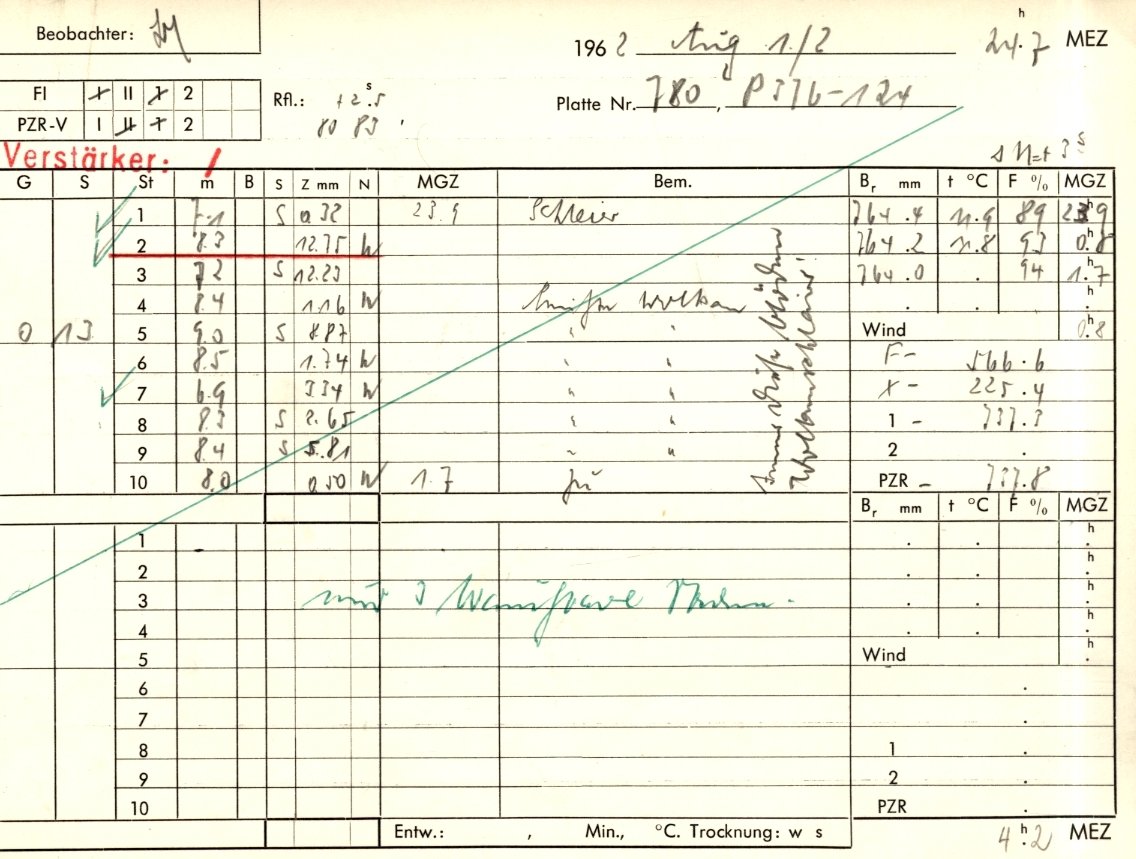 Beobachter:
1962 Aug 1/2 24.7 h MEZ
FI I II 1 2
PZR-V I II 1 2
Rfl.: +2.5 s
80 83
Platte Nr. 780, P376-124
Verstärker: /
s N=+ 3 s
G S St m B S Z mm N MGZ Bem. Br mm t °C F % MGZ
1 7.1 S 0 32 23.9 Schleier 764.4 11.9 89 23.9 h
2 8.3 12.75 N 764.2 11.8 93 0.8 h
3 7 2 S 12.23 764.0 . 94 1.7 h
4 8.4 1.16 N Wolken . . . h
0 13 5 9.0 S 8.87 " " Wind 0.8 h
6 8.5 1.74 N " " F- 566.6
7 6.9 3 34 N " " X- 225.4
8 8.3 S 2.65 " " 1 - 737.3
9 8.4 S 5.81 " " 2 .
10 8.0 0.50 N 1.7 zu PZR - 737.8
Br mm t °C F % MGZ
1 . . . h
2 . . . h
3 . . . h
4 . . . h
5 Wind . h
6 .
7 .
8 1 .
9 2 .
10 PZR .
nur 3
Entw.: , Min., °C. Trocknung: w s 4.2 h MEZ